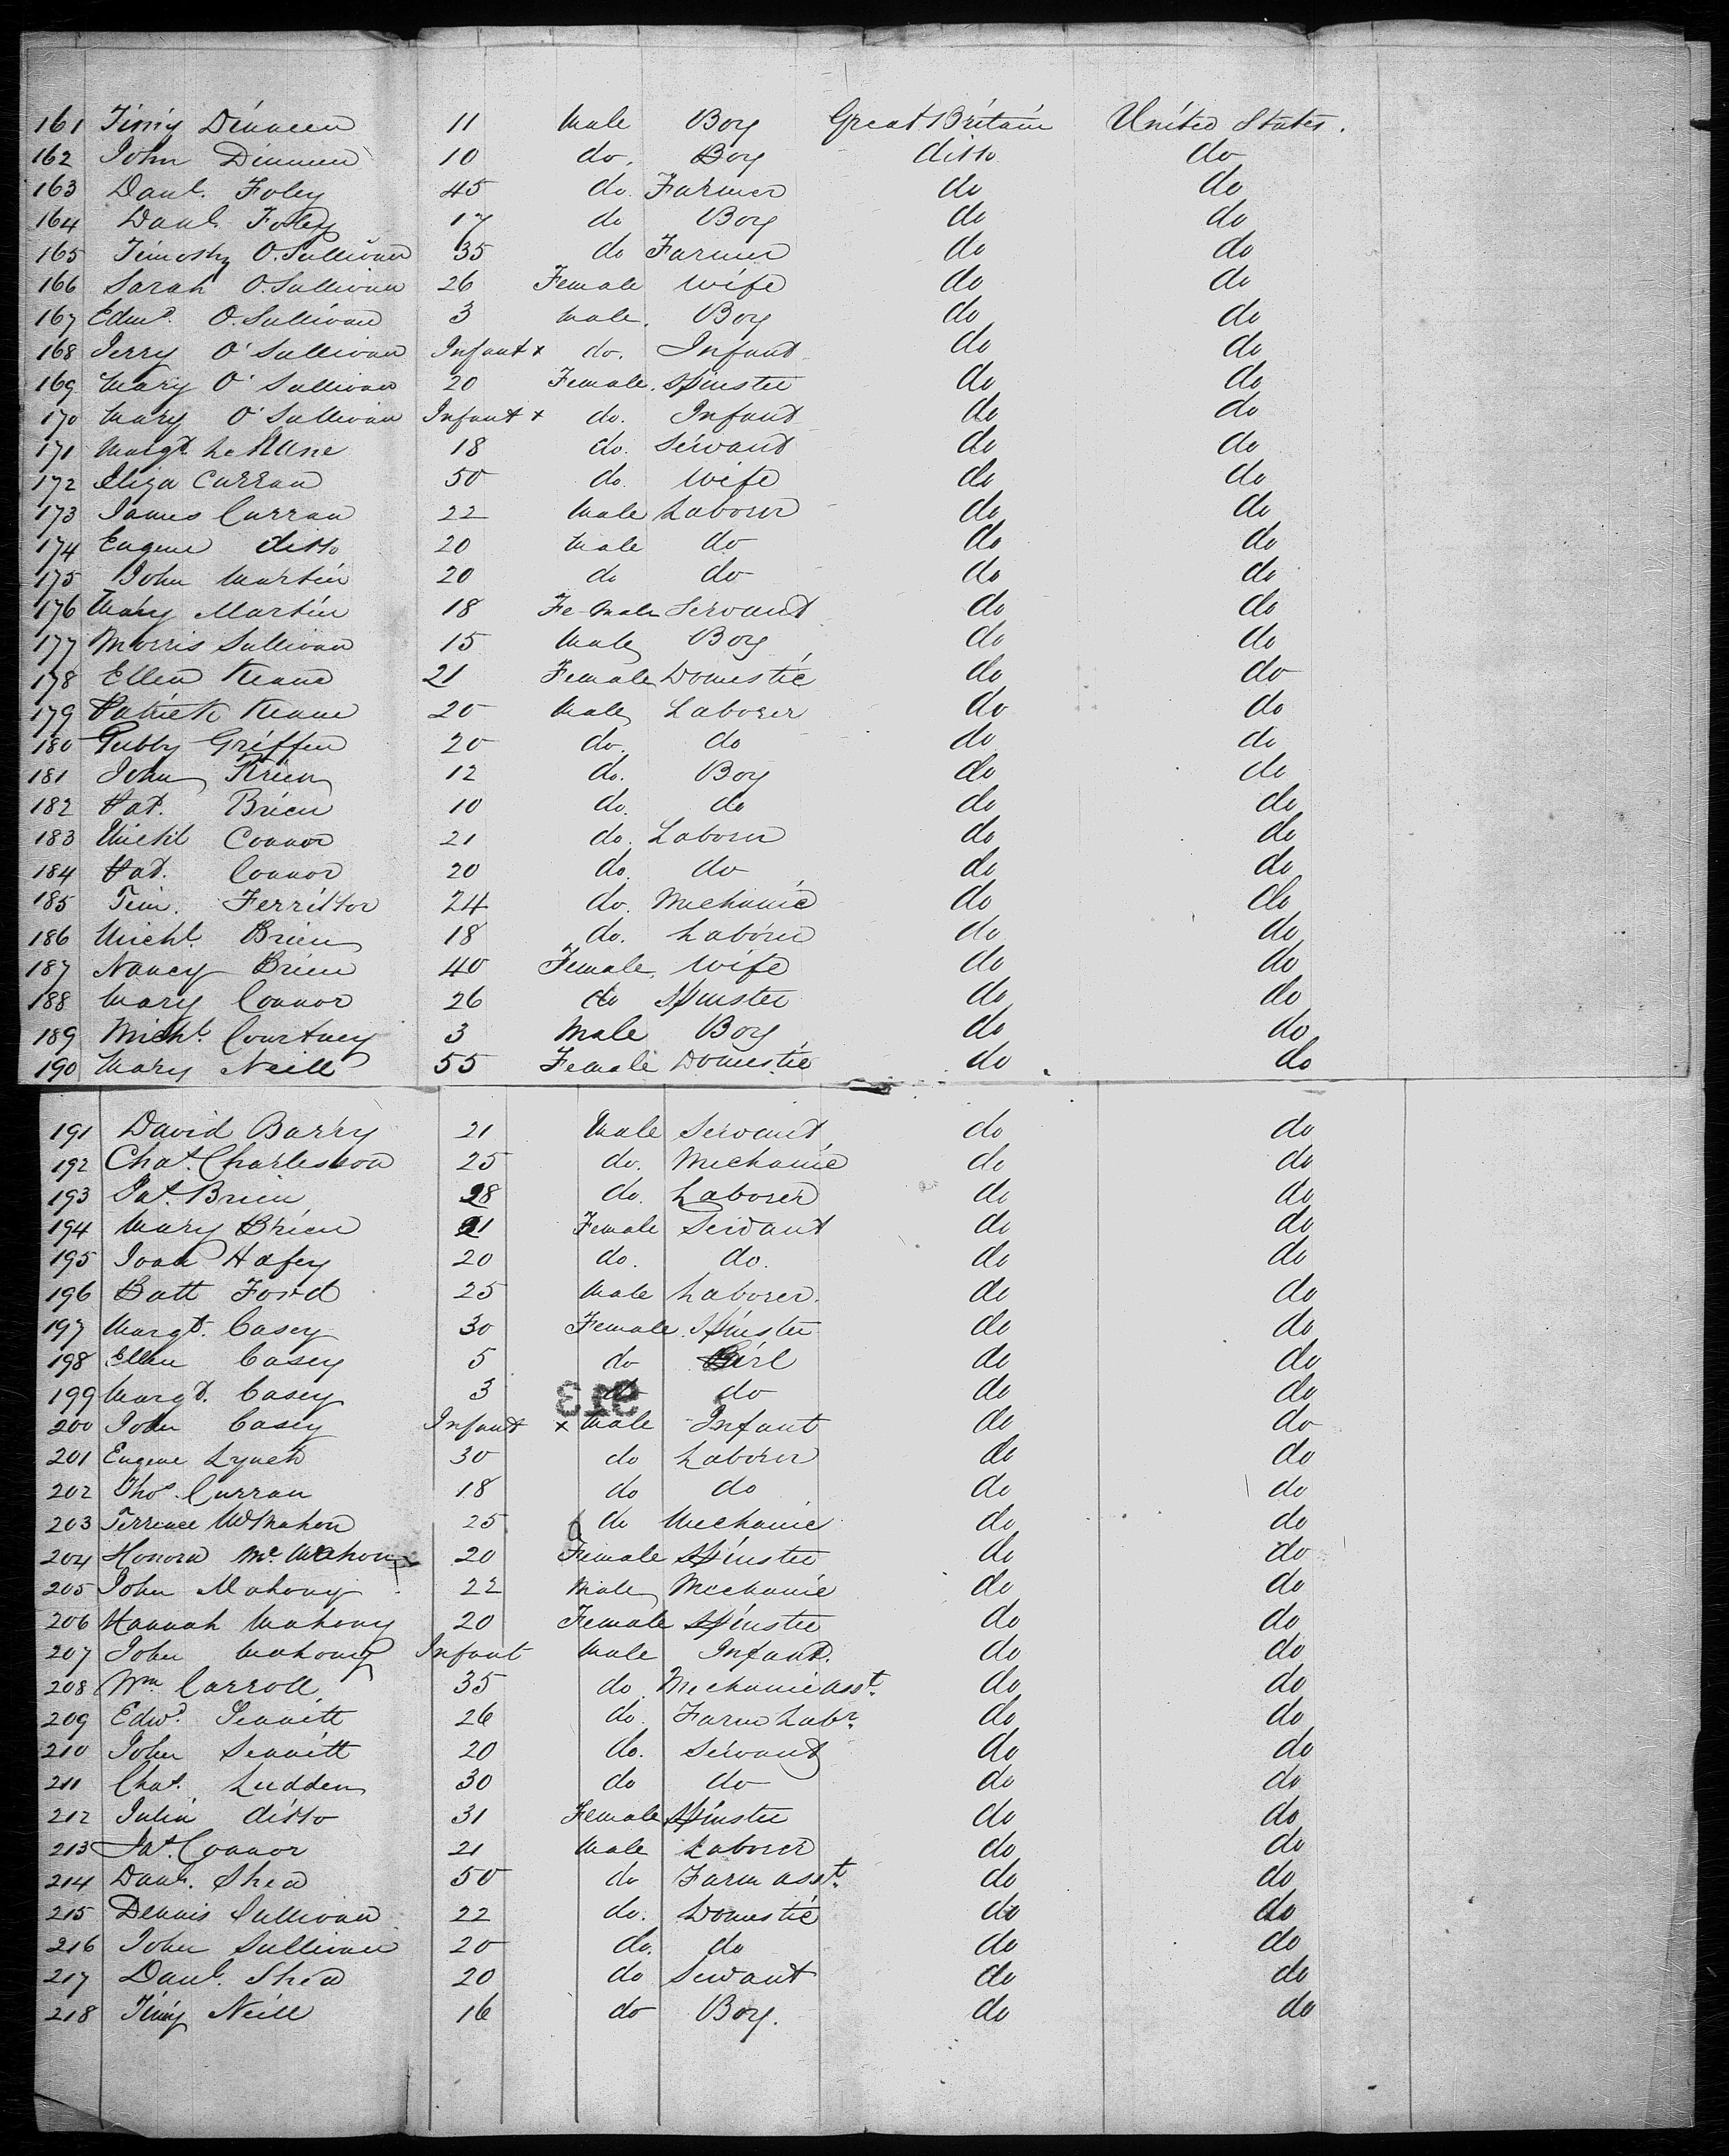 161 Timy Dinneen 11 Male Boy Great Britain United States.
162 John Dinneen 10 do. Boy ditto do
163 Danl. Foley 45 do. Farmer do do
164 Danl. Foley 17 do Boy do do
165 Timothy O.Sullivan 35 do Farmer do do
166 Sarah O.Sullivan 26 Female Wife do do
167 Edmd. O.Sullivan 3 Male. Boy do do
168 Jerry O'Sullivan Infant x do. Infant do do
169 Mary O'Sullivan 20 Female. Spinster do do
170 Mary O'Sullivan Infant x do. Infant do do
171 Margt. 18 do. Servant do do
172 Eliza Curran 50 do. Wife do do
173 James Curran 22 Male Laborer do do
174 Eugene ditto 20 Male do do do
175 John Martin 20 do do do do
176 Mary Martin 18 Fe-Male Servant do do
177 Morris Sullivan 15 Male Boy do do
178 Ellen Keane 21 Female Domestic do do
179 Patrick Keane 20 Male Laborer do do
180 Griffin 20 do. do do do
181 John Brien 12 do. Boy do do
182 Pat. Brien 10 do. do do do
183 Michl Connor 21 do. Laborer do do
184 Pat. Connor 20 do. do do do
185 Tim. Ferritter 24 do. Mechanic do do
186 Michl. Brien 18 do. Laborer do do
187 Nancy Brien 40 Female. Wife do do
188 Mary Connor 26 do Spinster do do
189 Michl. Courtney 3 Male Boy do do
190 Mary Neill 55 Female Domestic do do
191 David Barry 21 Male Servant do do
192 Chas. Charleston 25 do. Mechanic do do
193 Pat. Brien 28 do. Laborer do do
194 Mary Brien 21 Female Servant do do
195 Joan Hafey 20 do. do. do do
196 Batt Ford 25 Male Laborer. do do
197 Margt. Casey 30 Female. Spinster do do
198 Ellen Casey 5 do Girl do do
199 Margt. Casey 3 do do do do
313
200 John Casey Infant x Male Infant do do
201 Eugene Lynch 30 do Laborer do do
202 Thos. Curran 18 do do do do
203 Terrence McMahon 25 do Mechanic do do
204 Honora Mc.Mahon 20 Female Spinster do do
205 John Mahony 22 Male Mechanic do do
206 Hannah Mahony 20 Female Spinster do do
207 John Mahony Infant Male Infant. do do
208 Wm Carroll 35 do Mechanic asst. do do
209 Edwd. Sennitt 26 do. Farm Labr. do do
210 John Sennitt 20 do. Servant do do
211 Chas. Ludden 30 do do do do
212 Julia ditto 31 Female Spinster do do
213 Connor 21 Male Laborer do do
214 Danl. Shea 50 do Farm asst. do do
215 Dennis Sullivan 22 do. Domestic do do
216 John Sullivan 20 do. do do do
217 Danl. Shea 20 do Servant do do
218 Timy Neill 16 do Boy. do do